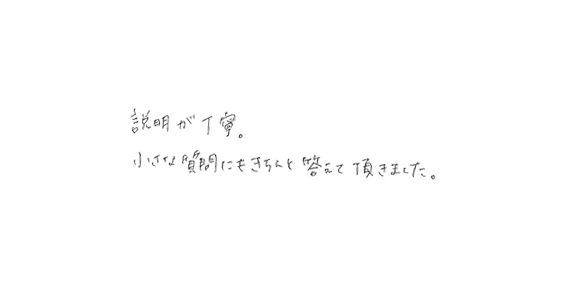 説明が丁寧。
小さな質問にもきちんと答えて頂きました。